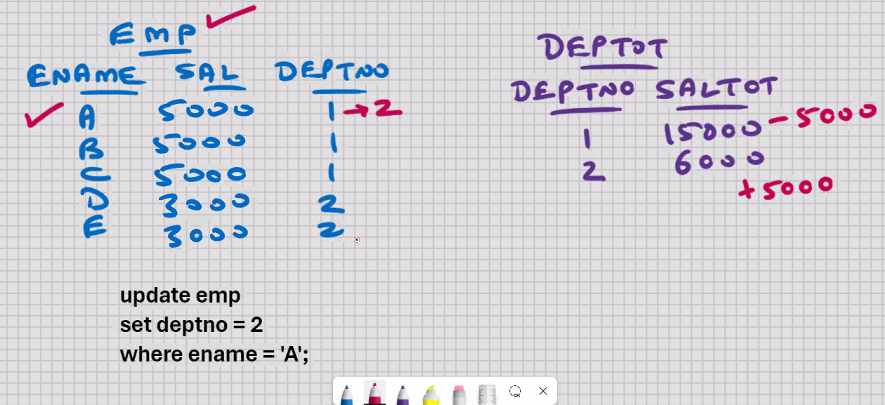 EMP
ENAME SAL DEPTNO
A 5000 1 → 2
B 5000 1
C 5000 1
D 3000 2
E 3000 2
DEPTOT
DEPTNO SALTOT
1 15000 - 5000
2 6000
+ 5000
update emp
set deptno = 2
where ename = 'A';